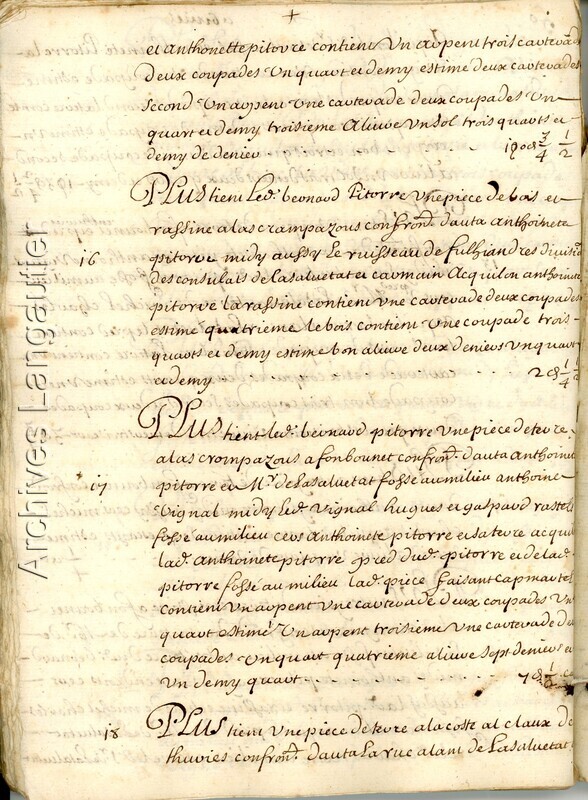 +
et anthonette pitorre contient Un arpent trois cartevades
deux coupades Un quart et demy estime deux cartevades
second Un arpent Une cartevade deux coupades Un
quart et demy troisieme Alivre Un sol trois quarts et
demy de denier 1s 0d 3/4 1/2
PLUS tient led. bernard Pitorre Une piece de bois et
rassine a las crampazous confron. d'auta anthoinete
16 pitorre midy aussy Le ruisseau de fulhiandres
des consulats de Lasaluetat et carmain Acquilon anthoinete
pitorre La rassine contient Une cartevade deux coupades
estime quatrieme le bois contient Une coupade trois
quarts et demy estime bon alivre deux deniers Un quart
et demy 2d 1/4
PLUS tient led. bernard pitorre Une piece de terre
a las crompazous a fonbounet confron. d'auta anthoinete
17 pitorre et Mr. de Lasaluetat fosse au milieu anthoine
Vignal midy Led. Vignal hugues et gaspard
fosse au milieu cers Anthoinete pitorre et sa terre acquilon
lad. Anthoinete pitorre pred dud. pitorre et de lad.
pitorre fosse au milieu lad. piece faisant capmartel
contient Un arpent Une cartevade deux coupades Un
quart estimé Un arpent troisieme Une cartevade deux
coupades Un quart quatrieme alivre sept deniers et
Un demy quart 7d 1/2
18 PLUS tient Une piece de terre a la coste al claux de
thuries confron. d'auta La rue alant de Lasaluetat
Archives Langautier